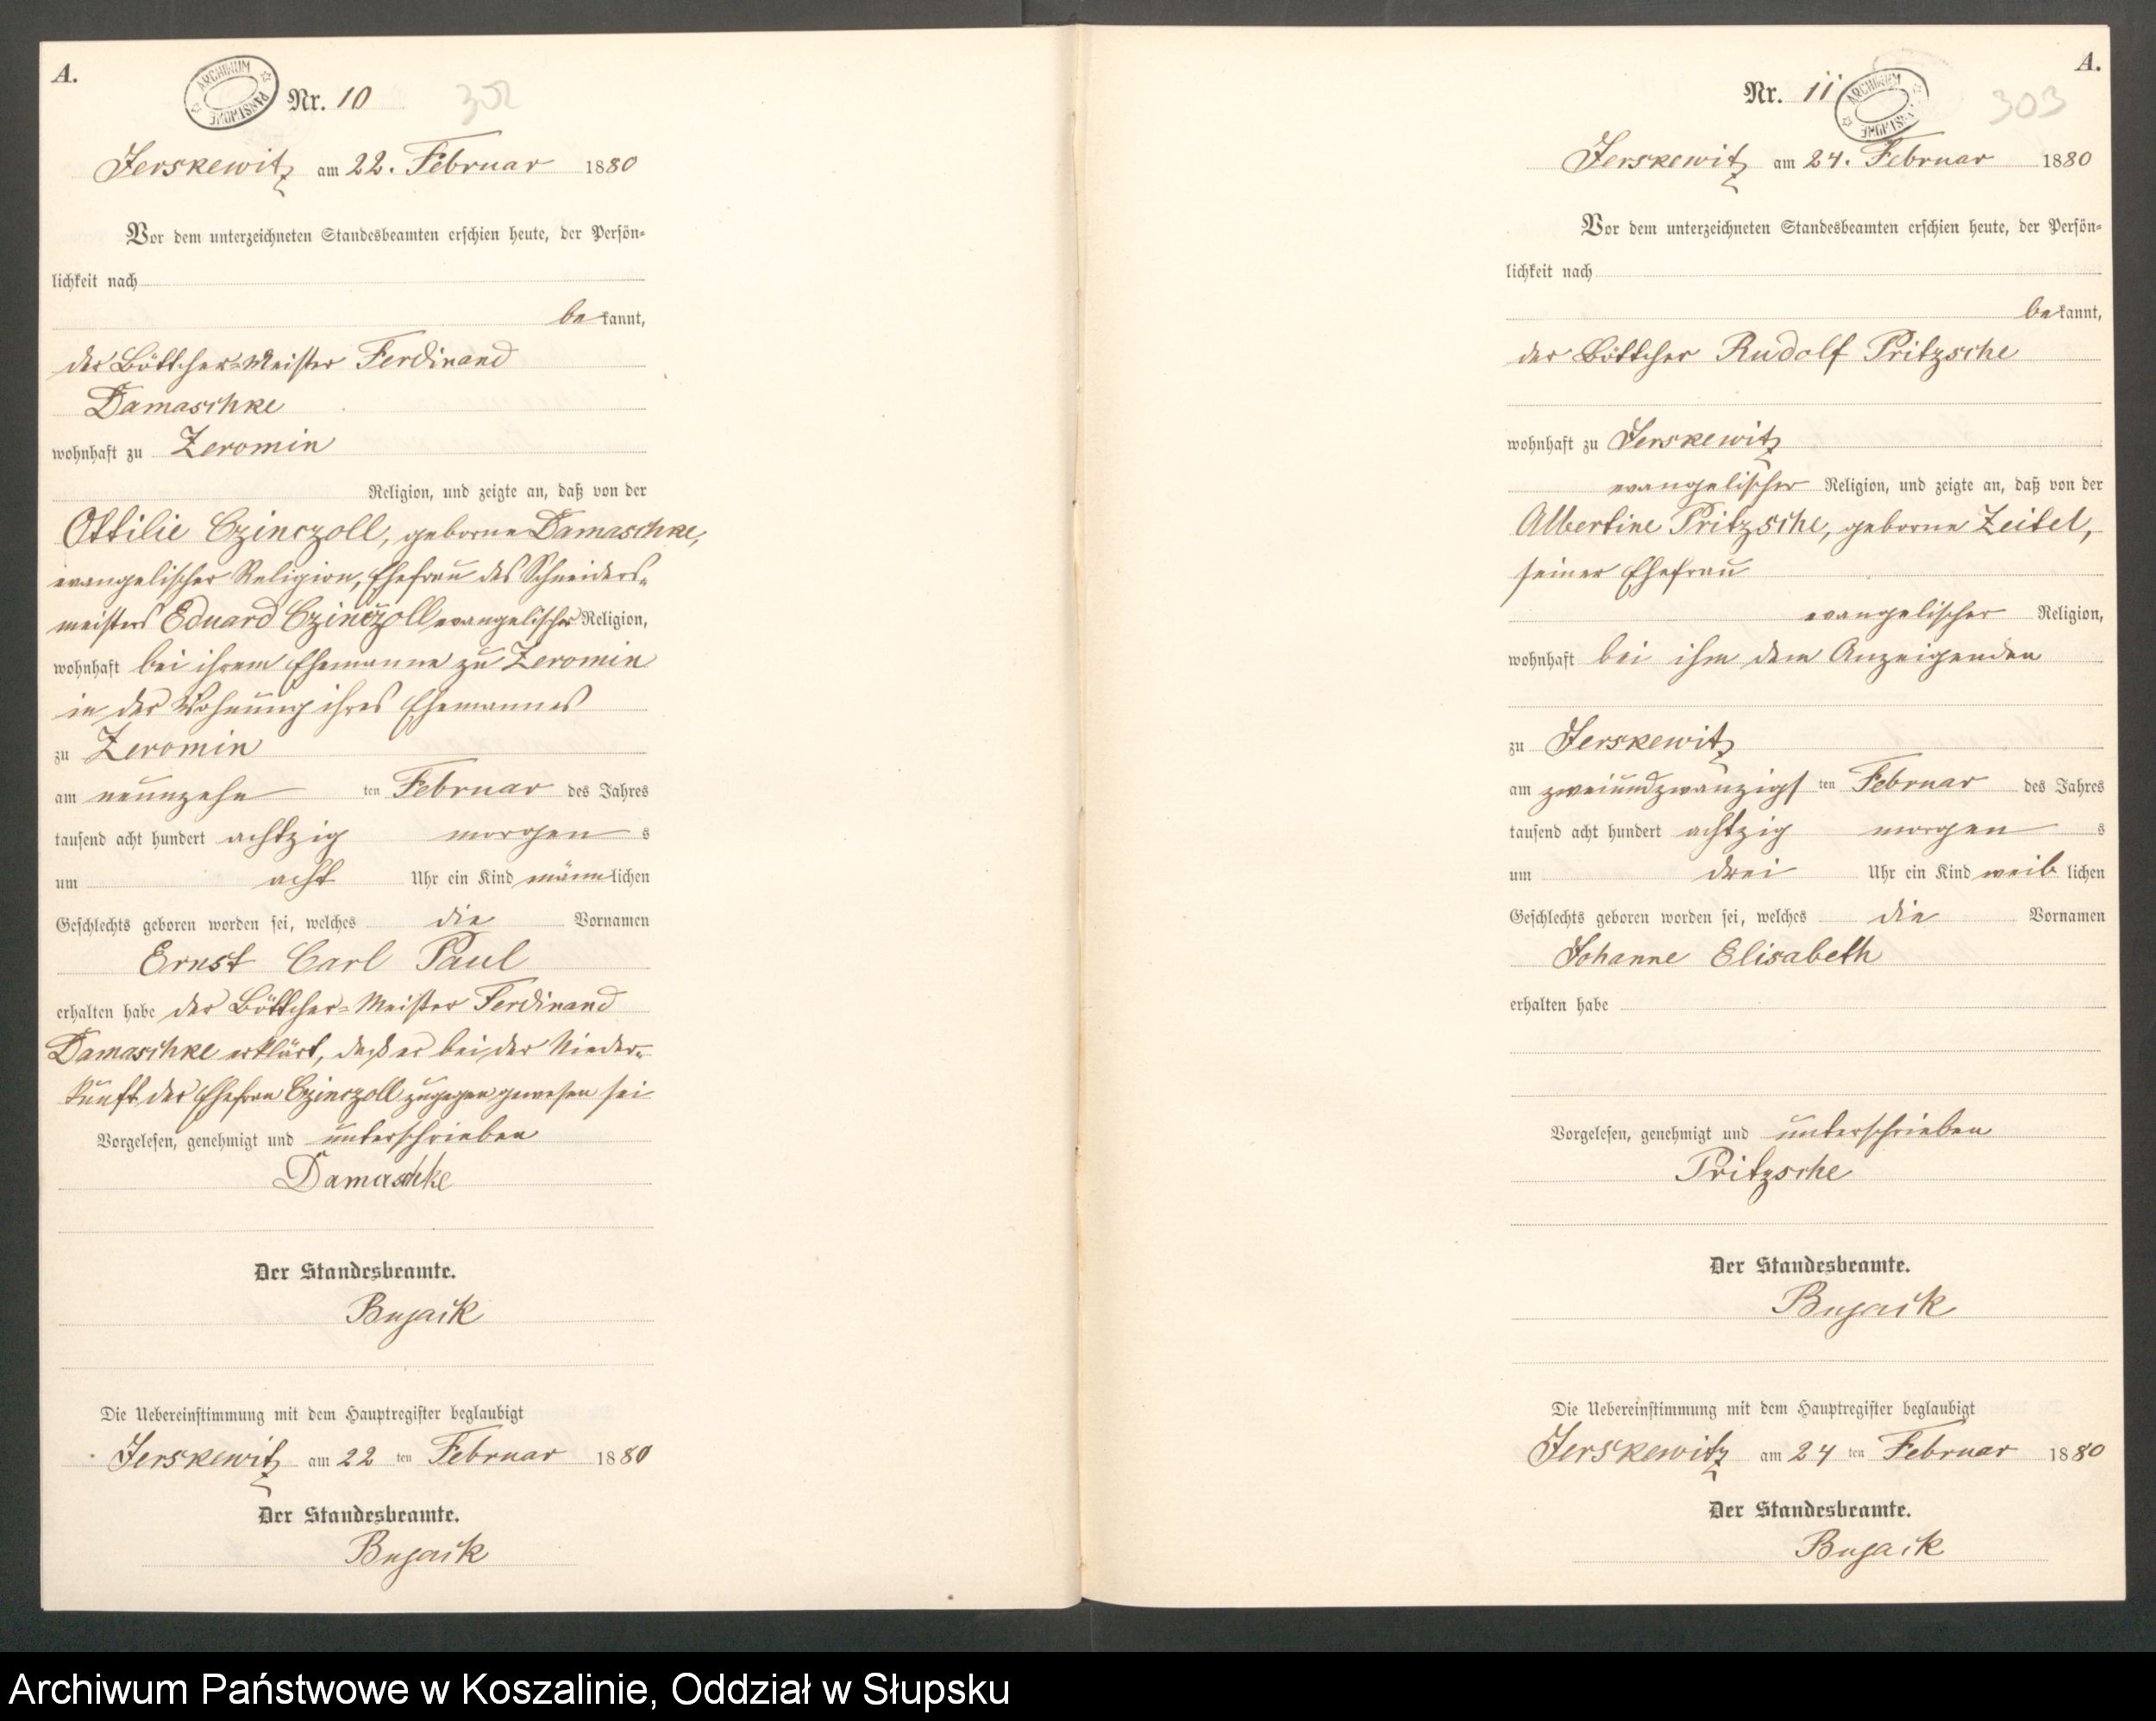 A.
ARCHIWUM PAŃSTWOWE
Nr. 10
302
Jerskewitz am 22. Februar 1880
Vor dem unterzeichneten Standesbeamten erschien heute, der Persön-
lichkeit nach
be kannt,
der Böttcher-Meister Ferdinand
Damaschke
wohnhaft zu Zeromin
Religion, und zeigte an, daß von der
Ottilie Czinczoll, geborne Damaschke,
evangelischer Religion, Ehefrau des Schneider-
meisters Eduard Czinczoll evangelischer Religion,
wohnhaft bei ihrem Ehemanne zu Zeromin
in der Wohnung ihres Ehemannes
zu Zeromin
am neunzehn ten Februar des Jahres
tausend acht hundert achtzig morgen s
um acht Uhr ein Kind männlichen
Geschlechts geboren worden sei, welches die Vornamen
Ernst Carl Paul
erhalten habe der Böttcher-Meister Ferdinand
Damaschke erklärt, daß er bei der Nieder-
kunft der Ehefrau Czinczoll zugegen gewesen sei
Vorgelesen, genehmigt und unterschrieben
Damaschke
Der Standesbeamte.
Bujack
Die Uebereinstimmung mit dem Hauptregister beglaubigt
Jerskewitz am 22 ten Februar 1880
Der Standesbeamte.
Bujack
A.
Nr. 11
ARCHIWUM PAŃSTWOWE
303
Jerskewitz am 24. Februar 1880
Vor dem unterzeichneten Standesbeamten erschien heute, der Persön-
lichkeit nach
be kannt,
der Böttcher Rudolf Pritzsche
wohnhaft zu Jerskewitz
evangelischer Religion, und zeigte an, daß von der
Albertine Pritzsche, geborne Zeitel,
seiner Ehefrau
evangelischer Religion,
wohnhaft bei ihm dem Anzeigenden
zu Jerskewitz
am zweiundzwanzigs ten Februar des Jahres
tausend acht hundert achtzig morgen s
um drei Uhr ein Kind weib lichen
Geschlechts geboren worden sei, welches die Vornamen
Johanne Elisabeth
erhalten habe
Vorgelesen, genehmigt und unterschrieben
Pritzsche
Der Standesbeamte.
Bujack
Die Uebereinstimmung mit dem Hauptregister beglaubigt
Jerskewitz am 24 ten Februar 1880
Der Standesbeamte.
Bujack
Archiwum Państwowe w Koszalinie, Oddział w Słupsku